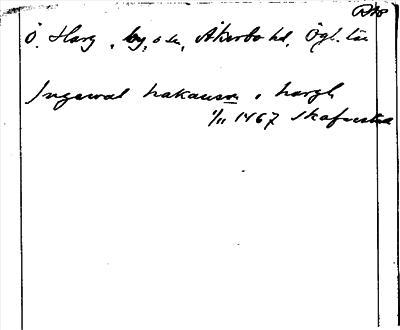 Ö. Harg, by, o sn, Åkerbo hd, Ögl. län
Ingewal hakansson i hargh
1/11 1467 Skafvestad